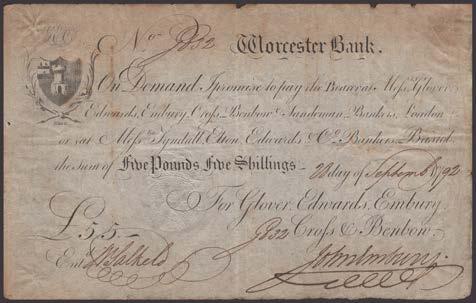 No G832 Worcester Bank.
On Demand I promise to pay the Bearer at Messrs Glover
Edwards, Embury, Cross, Benbow & Sandeman Bankers, London
or at Messrs Tyndall, Elton, Edwards & Co. Bankers Bristol
the sum of Five Pounds, Five Shillings 28 day of Septemb 1792
For Glover, Edwards, Embury
G832 Cross & Benbow
£5,5
Ent
John Embury